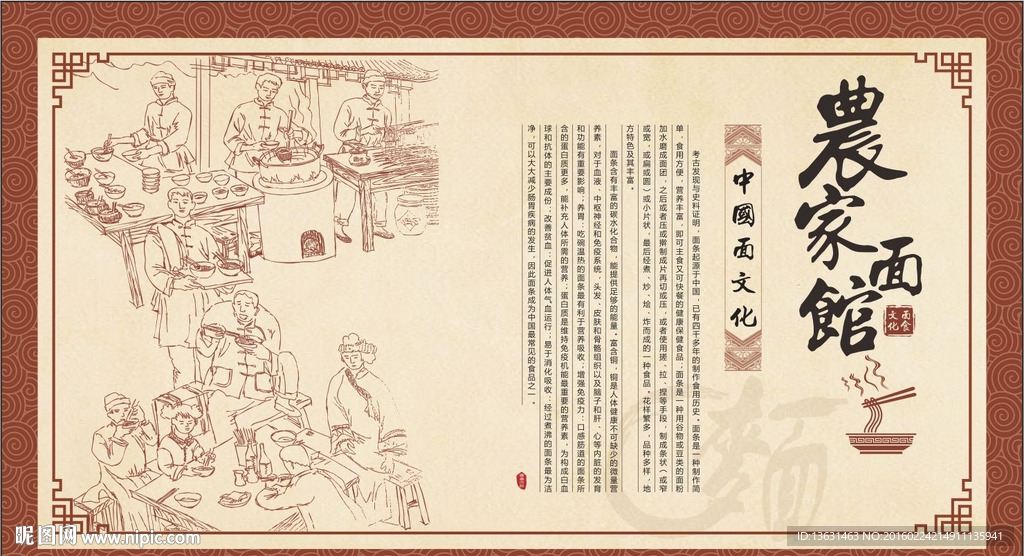 農家面館
面食
文化
中國面文化
考古发现与史料证明，面条起源于中国，已有四千多年的制作食用历史。面条是一种制作简
单，食用方便，营养丰富，即可主食又可快餐的健康保健食品；面条是一种用谷物或豆类的面粉
加水磨成面团，之后或者压或擀制成片再切或压，或者使用搓、拉、捏等手段，制成条状（或窄
或宽，或扁或圆）或小片状，最后经煮、炒、烩、炸而成的一种食品。花样繁多，品种多样，地
方特色及其丰富。
面条含有丰富的碳水化合物，能提供足够的能量。富含铜，铜是人体健康不可缺少的微量营
养素，对于血液、中枢神经和免疫系统，头发、皮肤和骨骼组织以及脑子和肝、心等内脏的发育
和功能有重要影响；养胃：吃碗温热的面条最有利于营养吸收；增强免疫力：口感筋道的面条所
含的蛋白质更多，能补充人体所需的营养；蛋白质是维持免疫机能最重要的营养素，为构成白血
球和抗体的主要成份；改善贫血：促进人体气血运行；易于消化吸收：经过煮沸的面条最为洁
净，可以大大减少肠胃疾病的发生，因此面条成为中国最常见的食品之一。
麵
昵图网 www.nipic.com
ID:13631463 NO:20160224214911135941